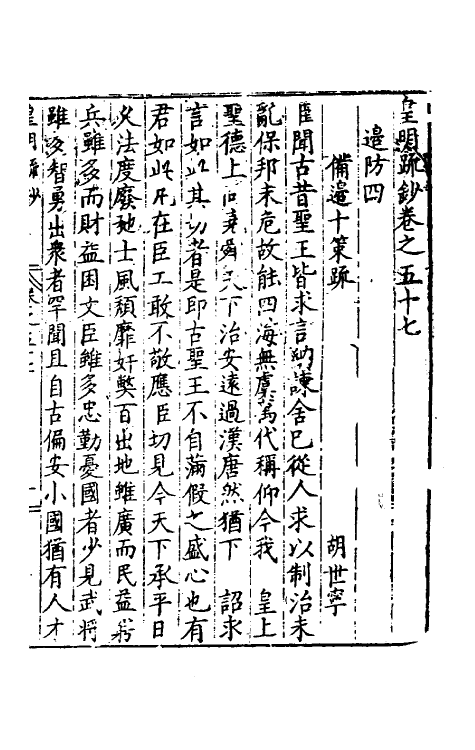 皇明疏鈔卷之五十七
邊防四
備邊十策疏 胡世寧
臣聞古昔聖王皆求言納諫舍已從人求以制治未
亂保邦未危故能四海無虞萬代稱仰今我 皇上
聖德上同堯舜天下治安遠過漢唐然猶下 詔求
言如此其切者是即古聖王不自滿假之盛心也有
君如此凡在臣工敢不敬應臣切見今天下承平日
久法度廢弛士風頹靡奸弊百出地雖廣而民益窮
兵雖多而財益困文臣雖多忠勤憂國者少見武將
雖多智勇出衆者罕聞且自古偏安小國猶有人才
皇明疏鈔